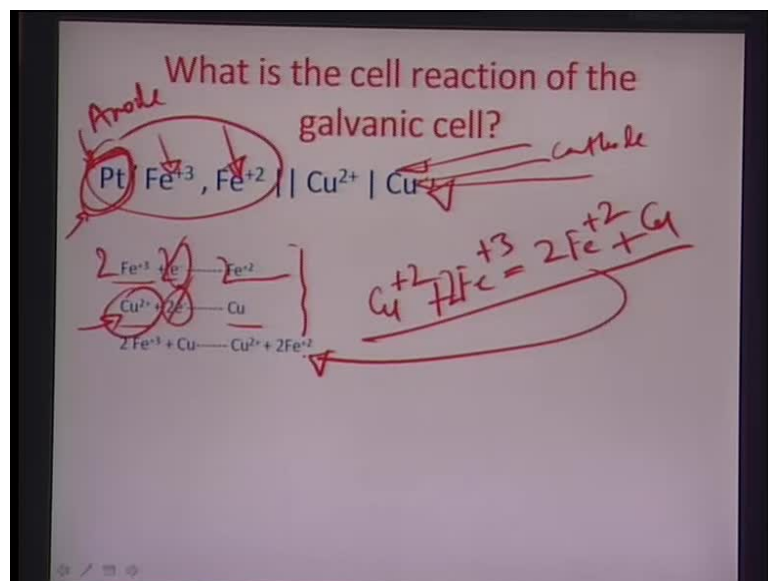 What is the cell reaction of the
galvanic cell?
Anode
Cathode
Pt | Fe+3 , Fe+2 || Cu2+ | Cu
2 Fe+3 + 2e ------ 2 Fe+2
Cu2+ + 2e ------ Cu
2 Fe+3 + Cu ------ Cu2+ + 2Fe+2
Cu+2 + 2Fe+3 = 2Fe+2 + Cu